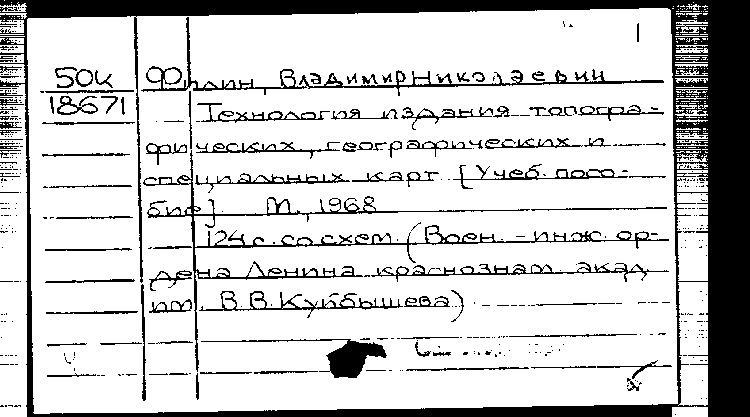 50к Филин, Владимир Николаевич
18671 Технология издания топогра-
фических, географических и
специальных карт [Учеб. посо-
бие] М., 1968
124 с. со схем. (Воен.-инж. ор-
дена Ленина краснознам. акад.
им. В.В. Куйбышева)